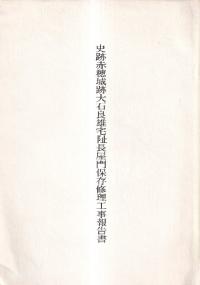 史跡赤穂城跡大石良雄宅阯長屋門保存修理工事報告書